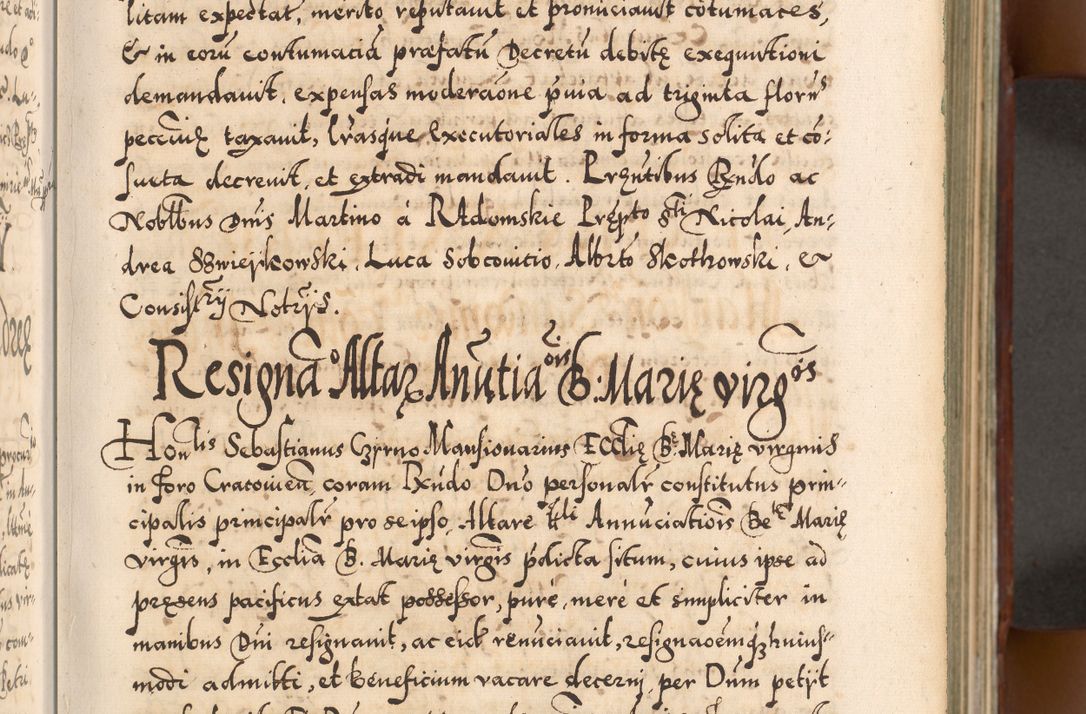 litam expectat, merito reputauit et pronũciauit cõtumaces,
& in eorũ contumaciã præfatũ Decretũ debitę exequutioni
demandauit, expensas moderãone pũia ad triginta florẽ
pecũię taxauit, lrãsque Executoriales in forma solita et cõ-
sueta decreuit, et extradi mandauit. Prẽntibus Rẽndo ac
Nobĩlbus Dnĩs Martino à RAdomskie Prępto Sti Nicolai, An-
drea Szwieykowski, Luca Sobcouicio, Albrto Skothowski, &
Consistrij Notrijs.
Resignão Altarę Anũtiaõis B. Marię Virgis
Honlis Sebastianus Czyrno Mansionarius Ecclię Bę Marię virginis
in foro Cracouieñ, coram Rxudo Dno personalr constitutus prin-
cipalis principalr pro se ipso, Altare ttli Annũciatiõis Betę Marię
virgis, in Ecclia B. Marię virgis pdicta situm, cuius ipse ad
pręsens pacificus extat possessor, purè, merè et simpliciter in
manibus Dni resignauit, ac eid renũciauit, resignaõemq huius-
modi admitti, et beneficium vacare decerni, per Dum petijt